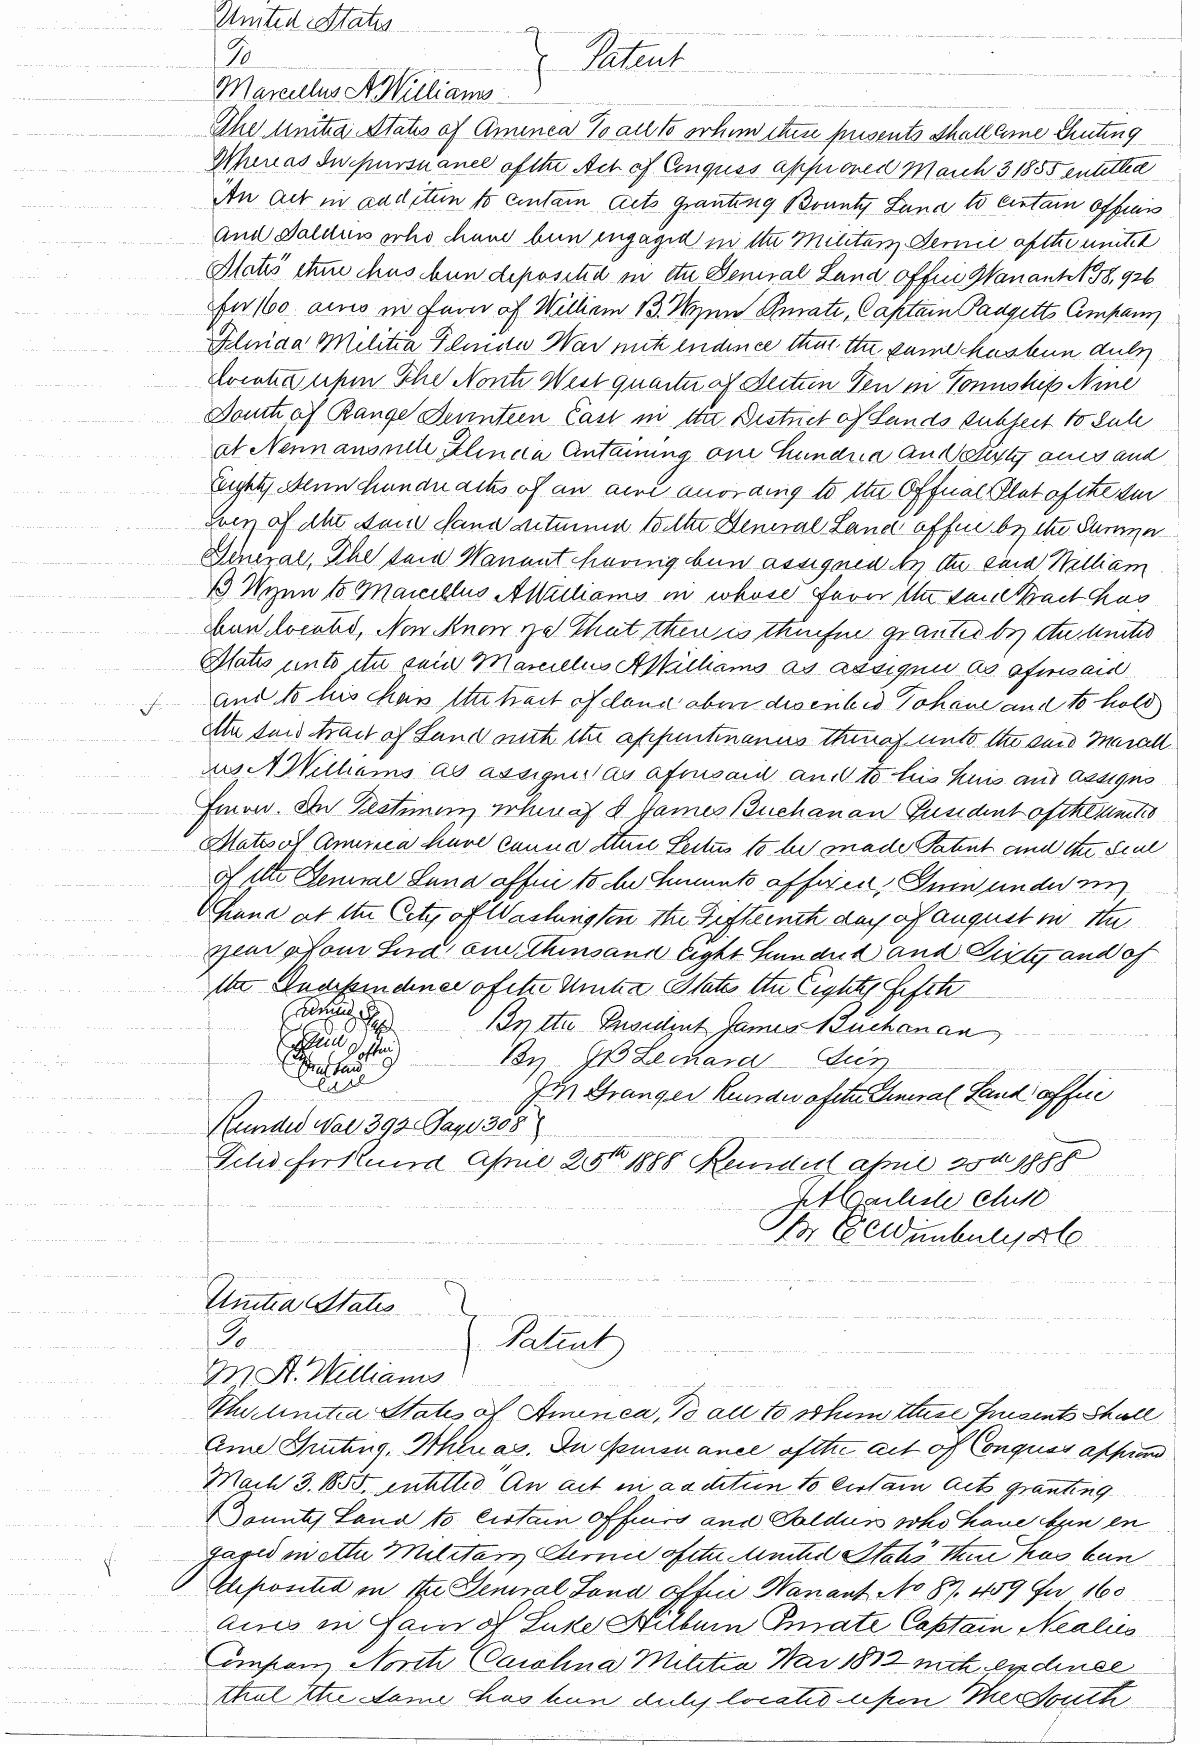 United States
To
Patent
Marcellus A Williams
The United States of America To all to whom these presents shall Come Greeting
Whereas In pursuance of the Act of Congress approved March 3 1855 entitled
"An act in addition to certain acts granting Bounty Land to certain officers
and Soldiers who have been engaged in the Military Service of the united
States" there has been deposited in the General Land office Warrant No 58,926
for 160 acres in favor of William B. Wynn Private, Captain Padgetts Company
Florida Militia Florida War with evidence that the same has been duly
located upon The North West quarter of Section Ten in Township Nine
South of Range Seventeen East in the District of Lands subject to Sale
at Newnansville Florida Containing one hundred and Sixty acres and
Eighty Seven hundredths of an acre according to the Official Plat of the Sur
vey of the said land returned to the General Land office by the Surveyor
General, The said Warrant having been assigned by the said William
B Wynn to Marcellus A Williams in whose favor the said Tract has
been located, Now Know ye That there is therefore granted by the united
States unto the said Marcellus A Williams as assignee as aforesaid
and to his heirs the tract of land above described To have and to hold
the said tract of Land with the appurtenances thereof unto the said Marcell
us A Williams as assignee as aforesaid and to his heirs and assigns
forever. In Testimony whereof I James Buchanan President of the United
States of America have caused these Letters to be made Patent and the seal
of the General Land office to be hereunto affixed, Given under my
hand at the City of Washington the Fifteenth day of august in the
year of our Lord one thousand Eight hundred and Sixty and of
the Independence of the United States the Eighty fifth
By the President James Buchanan
By J B Leonard Secy
J N Granger Recorder of the General Land office
Recorded Vol 392 Page 308
Filed for Record April 25th 1888 Recorded april 25th 1888
J A Carlisle Clerk
By E C Wimberly D C
United States
To
Patent
M A. Williams
The United States of America, To all to whom these presents Shall
Come Greeting. Whereas. In pursuance of the act of Congress approved
March 3. 1855. entitled "An act in addition to certain acts granting
Bounty Land to certain officers and Soldiers who have been en
gaged in the Military Service of the United States" there has been
deposited in the General Land office Warrant No 87.459 for 160
acres in favor of Luke Hilburn Private Captain Nealies
Company North Carolina Militia War 1812 with evidence
that the same has been duly located upon The South